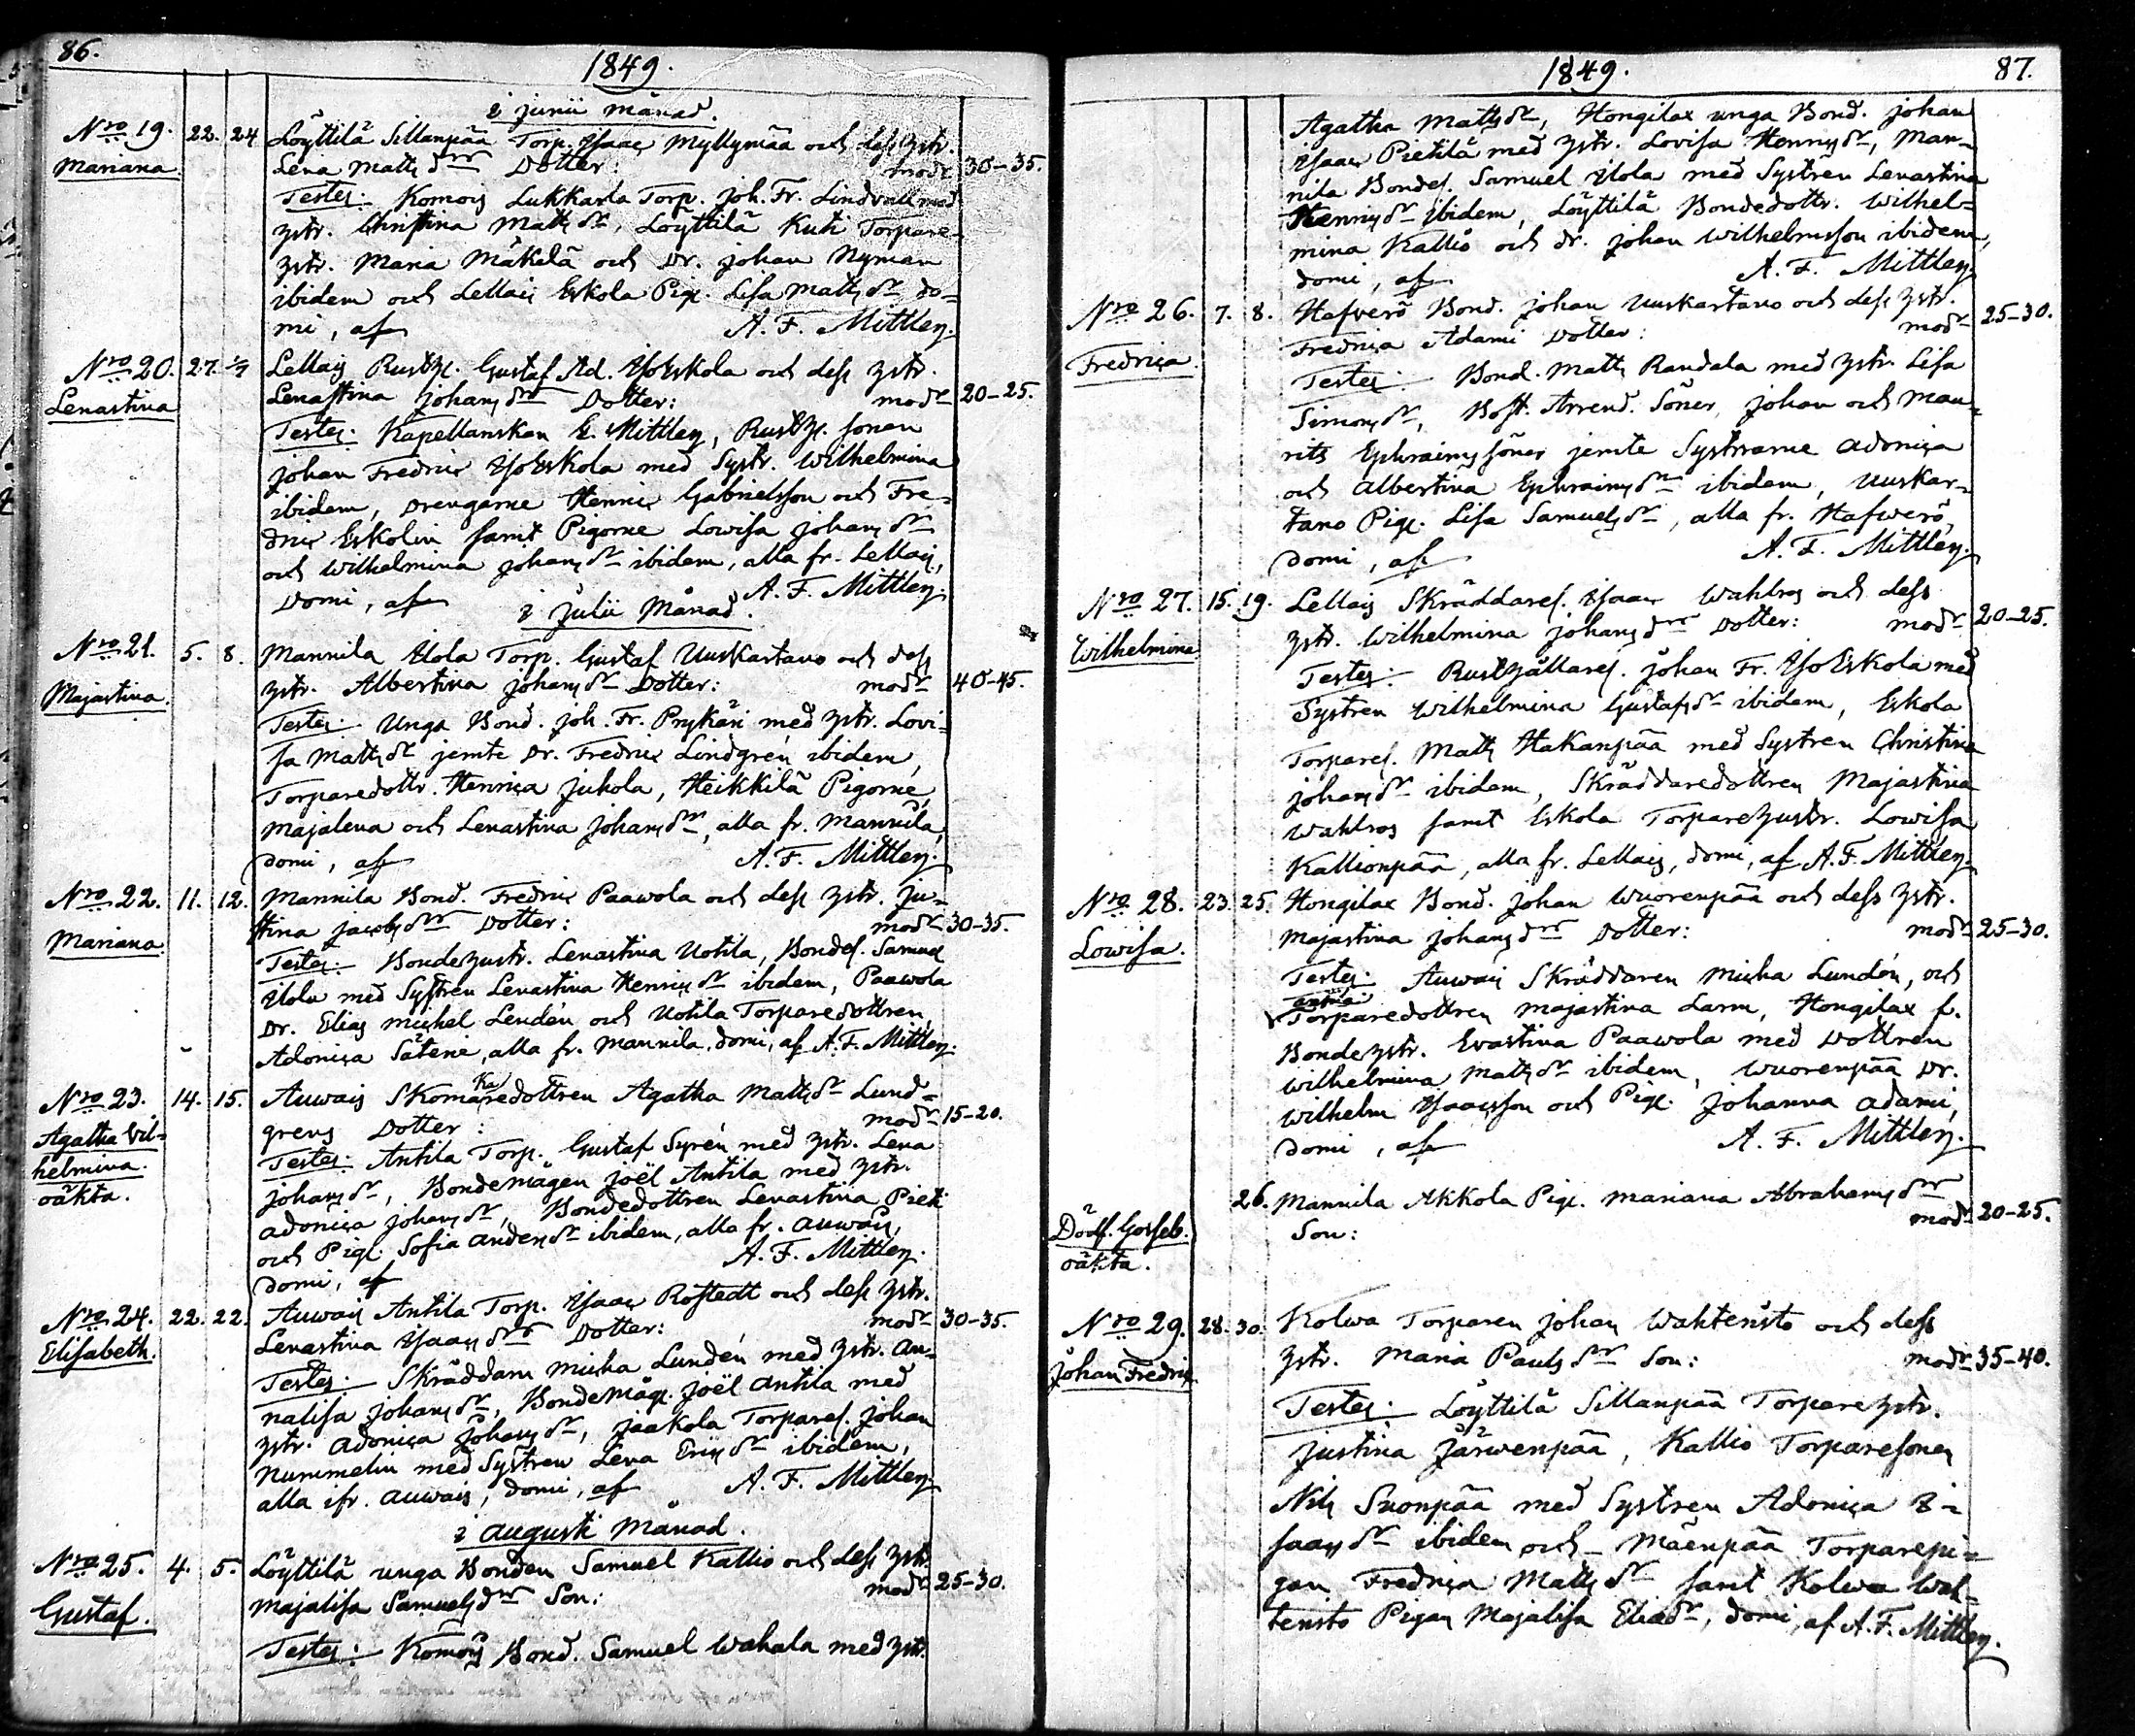 86.
1849.
i junii månad.
Nro 19. 22. 24 Löyttilä Sillanpää Torp. Isaac Myllymää och dess hstr.
Mariana Lena Matts dr Dotter: modr 30-35.
Testes: Komois Lukkarla Torp. Joh. Fr. Lindvall med
hstr. Christina Matts dr, Löyttilä Kuti Torpare-
hstr. Maria Mäkelä och Dr. Johan Nyman
ibidem och Lellais Eskola Pig. Lisa Matts dr, do-
mi, af A. F. Mittler.
Nro 20. 27. 1/7 Lellais Rusth. Gustaf Ad. Iso Eskola och dess hstr.
Lenastina Lenastina Johans dr Dotter: modr 20-25.
Testes: Kapellanskan E. Mittler, Rusth. sonen
Johan Fredric Iso Eskola med Systr. Wilhelmina
ibidem, Drengarne Henric Gabrielsson och Fre-
dric Eskolin samt Pigorne Lowisa Johans dr
och Wilhelmina Johans dr ibidem, alla fr. Lellais,
Domi, af A. F. Mittler.
i Julii Månad.
Nro 21. 5. 8. Mannila Ilola Torp. Gustaf Uuskartano och dess
Majastina. hstr. Albertina Johans dr Dotter: modr 40-45.
Testes: Unga Bond. Joh. Fr. Prykäri med hstr. Lovi-
sa Matts dr jemte Dr. Fredric Lindgrén ibidem,
Torparedottr. Henrica Juhola, Heikkilä Pigorne,
Majalena och Lenastina Johans dr, alla fr. Mannila,
domi, af A. F. Mittler.
Nro 22. 11. 12. Mannila Bond. Fredric Paawola och dess hstr. Ju-
Mariana stina Jacobs dr Dotter: modr 30-35.
Testes: Bondehustr. Lenastina Uotila, Bondes. Samuel
Ilola med Systren Lenastina Henrics dr ibidem, Paawola
Dr. Elias Michel Lendén och Uotila Torparedottren,
Adonica Säteri, alla fr. Mannila, domi, af A. F. Mittler.
Nro 23. 14. 15. Auwais Skomakaredottren Agatha Matts dr Lund-
Agatha Vil- grens Dotter: modr 15-20.
helmina. Testes: Antila Torp. Gustaf Syrén med hstr. Lena
oäkta. Johans dr, Bondemågen Joël Antila med hstr.
Adonica Johans dr, Bondedottren Lenastina Pieti
och Pig. Sofia Anders dr ibidem, alla fr. Auwais,
domi, af A. F. Mittler.
Nro 24. 22. 22. Auwais Antila Torp. Isaac Rostedt och dess hstr.
Elisabeth. Lenastina Isaacs dr Dotter: modr 30-35.
Testes: Skräddare Micha Lundén med hstr. An-
nalisa Johans dr, Bondemåg. Joël Antila med
hstr. Adonica Johans dr, Jaakola Torpares. Johan
Nummelin med Systren Lena Erics dr ibidem,
alla ifr. Auwais, domi, af A. F. Mittler
i Augusti Månad.
Nro 25. 4. 5. Löyttilä unga Bonden Samuel Kallio och dess hstr.
Gustaf. Majalisa Samuels dr Son: modr 25-30.
Testes: Komois Bond. Samuel Wahala med hstr.
1849. 87.
Agatha Matts dr, Hongilax unga Bond. Johan
Isaac Pietilä med hstr. Lovisa Henrics dr, Man-
nila Bondes. Samuel Ilola med Systren Lenastina
Henrics dr ibidem, Löyttilä Bondedottr. Wilhel-
mina Kallio och dr. Johan Wilhelmsson ibidem,
domi, af A. F. Mittler
Nro 26. 7. 8. Hafverö Bond. Johan Uuskartano och dess hstr.
Fredrica Fredrica Adami Dotter: modr 25-30.
Testes: Bond. Matts Randala med hstr. Lisa
Simons dr, Bost. Arrend. Söner, Johan och Mau-
rits Ephraims söner jemte Systrarne Adonica
och Albertina Ephraims dr ibidem, Uuskar-
tano Pig. Lisa Samuels dr, alla fr. Hafverö,
domi, af A. F. Mittler.
Nro 27. 15. 19. Lellais Skräddares. Isaac Wahlros och dess
Wilhelmina hstr. Wilhelmina Johans dr Dotter: modr 20-25.
Testes: Rusthållares. Johan Fr. Iso Eskola med
Systren Wilhelmina Gustafs dr ibidem, Eskola
Torpares. Matts Hakanpää med Systren Christina
Johans dr ibidem, Skräddaredottren Majastina
Wahlros samt Eskola Torparehustr. Lowisa
Kallionpää, alla fr. Lellais, domi, af A. F. Mittler.
Nro 28. 23. 25. Hongilax Bond. Johan Wuorenpää och dess hstr.
Lowisa. Majastina Johans dr Dotter: modr 25-30.
Testes: Auwais Skräddaren Micha Lundén, och
Torparedottren Majastina Larm, Hongilax f.
Bondehstr. Evastina Paawola med Dottren
Wilhelmina Matts dr ibidem, Wuorenpää Dr.
Wilhelm Isaacsson och Pig. Johanna Adami,
domi, af A. F. Mittler.
26. Mannila Akkola Pig. Mariana Abrahams dr
Dödf. Gosseb. Son: modr 20-25.
oäkta.
Nro 29. 28. 30. Kolwa Torparen Johan Wahteristo och dess
Johan Fredric hstr. Maria Pauls dr Son: modr 35-40.
Testes: Löyttilä Sillanpää Torparehstr.
Justina Järwenpää, Kallio Torparesonen
Nils Suonpää med Systren Adonica I-
saacs dr ibidem och Mäenpää Torparepi-
gan Fredrica Matts dr samt Kolwa Wah-
teristo Pigan Majalisa Eliæ dr, domi, af A. F. Mittler.